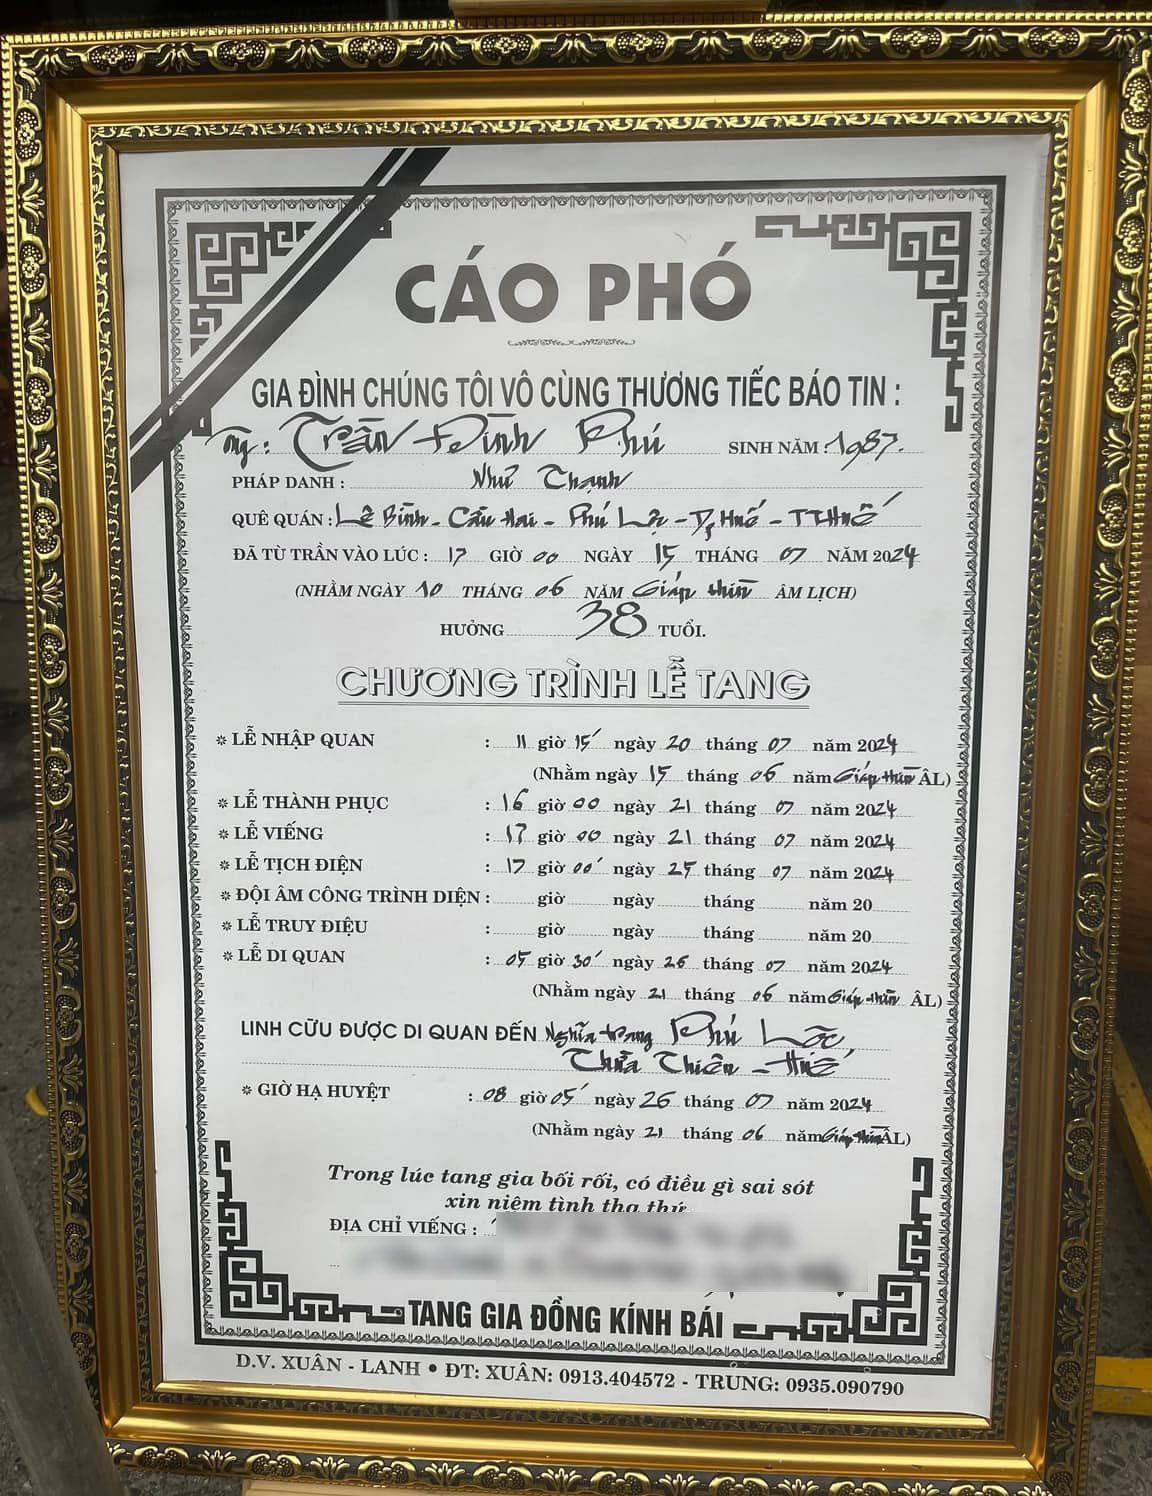 CÁO PHÓ
GIA ĐÌNH CHÚNG TÔI VÔ CÙNG THƯƠNG TIẾC BÁO TIN :
Ông : Trần Đình Phú SINH NĂM : 1987.
PHÁP DANH : Như Thạnh
QUÊ QUÁN : Lê Bình - Cầu Hai - Phú Lộc - Tp Huế - TT Huế
ĐÃ TỪ TRẦN VÀO LÚC : 17 GIỜ 00 NGÀY 15 THÁNG 07 NĂM 2024
(NHẰM NGÀY 10 THÁNG 06 NĂM Giáp thìn ÂM LỊCH)
HƯỞNG 38 TUỔI.
CHƯƠNG TRÌNH LỄ TANG
* LỄ NHẬP QUAN : 11 giờ 15' ngày 20 tháng 07 năm 2024
(Nhằm ngày 15 tháng 06 năm Giáp thìn ÂL)
* LỄ THÀNH PHỤC : 16 giờ 00 ngày 21 tháng 07 năm 2024
* LỄ VIẾNG : 17 giờ 00 ngày 21 tháng 07 năm 2024
* LỄ TỊCH ĐIỆN : 17 giờ 00' ngày 25 tháng 07 năm 2024
* ĐỘI ÂM CÔNG TRÌNH DIỆN : giờ ngày tháng năm 20
* LỄ TRUY ĐIỆU : giờ ngày tháng năm 20
* LỄ DI QUAN : 05 giờ 30' ngày 26 tháng 07 năm 2024
(Nhằm ngày 21 tháng 06 năm Giáp thìn ÂL)
LINH CỮU ĐƯỢC DI QUAN ĐẾN Nghĩa trang Phú Lộc,
Thừa Thiên - Huế
* GIỜ HẠ HUYỆT : 08 giờ 05' ngày 26 tháng 07 năm 2024
(Nhằm ngày 21 tháng 06 năm Giáp thìn ÂL)
Trong lúc tang gia bối rối, có điều gì sai sót
xin niệm tình tha thứ
ĐỊA CHỈ VIẾNG :
TANG GIA ĐỒNG KÍNH BÁI
D.V. XUÂN - LANH • ĐT: XUÂN: 0913.404572 - TRUNG: 0935.090790